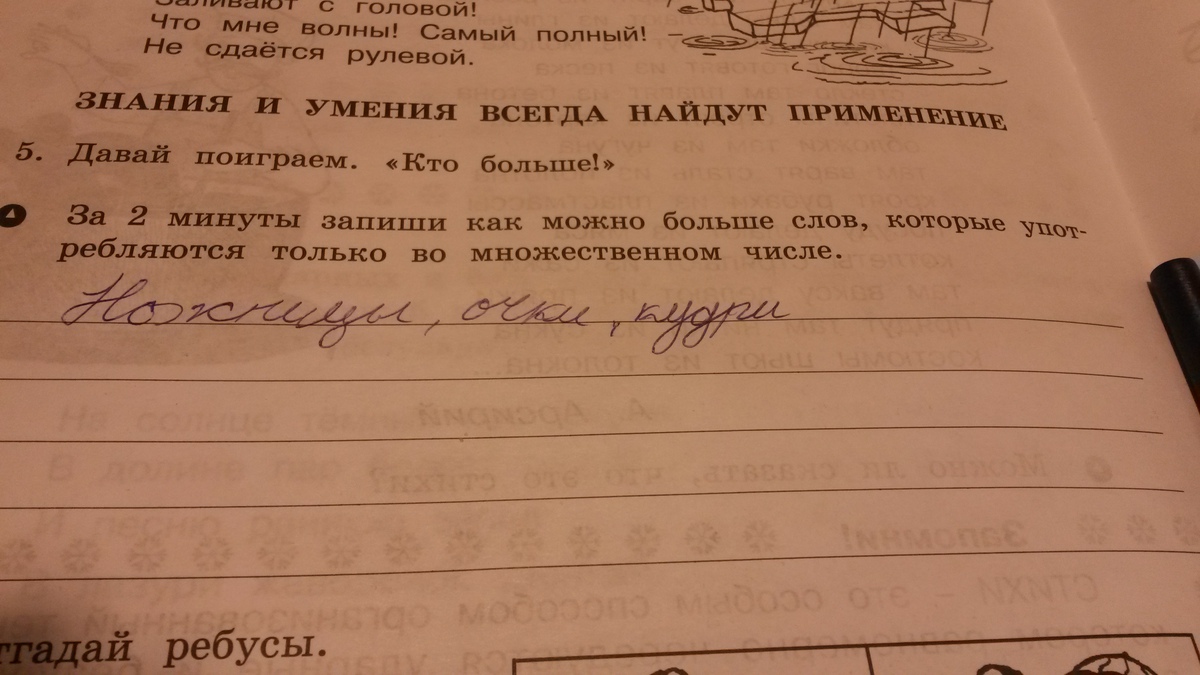 Заливают с головой!
Что мне волны! Самый полный! –
Не сдаётся рулевой.
ЗНАНИЯ И УМЕНИЯ ВСЕГДА НАЙДУТ ПРИМЕНЕНИЕ
5. Давай поиграем. «Кто больше!»
За 2 минуты запиши как можно больше слов, которые упот-
ребляются только во множественном числе.
Ножницы, очки, кудри
тгадай ребусы.